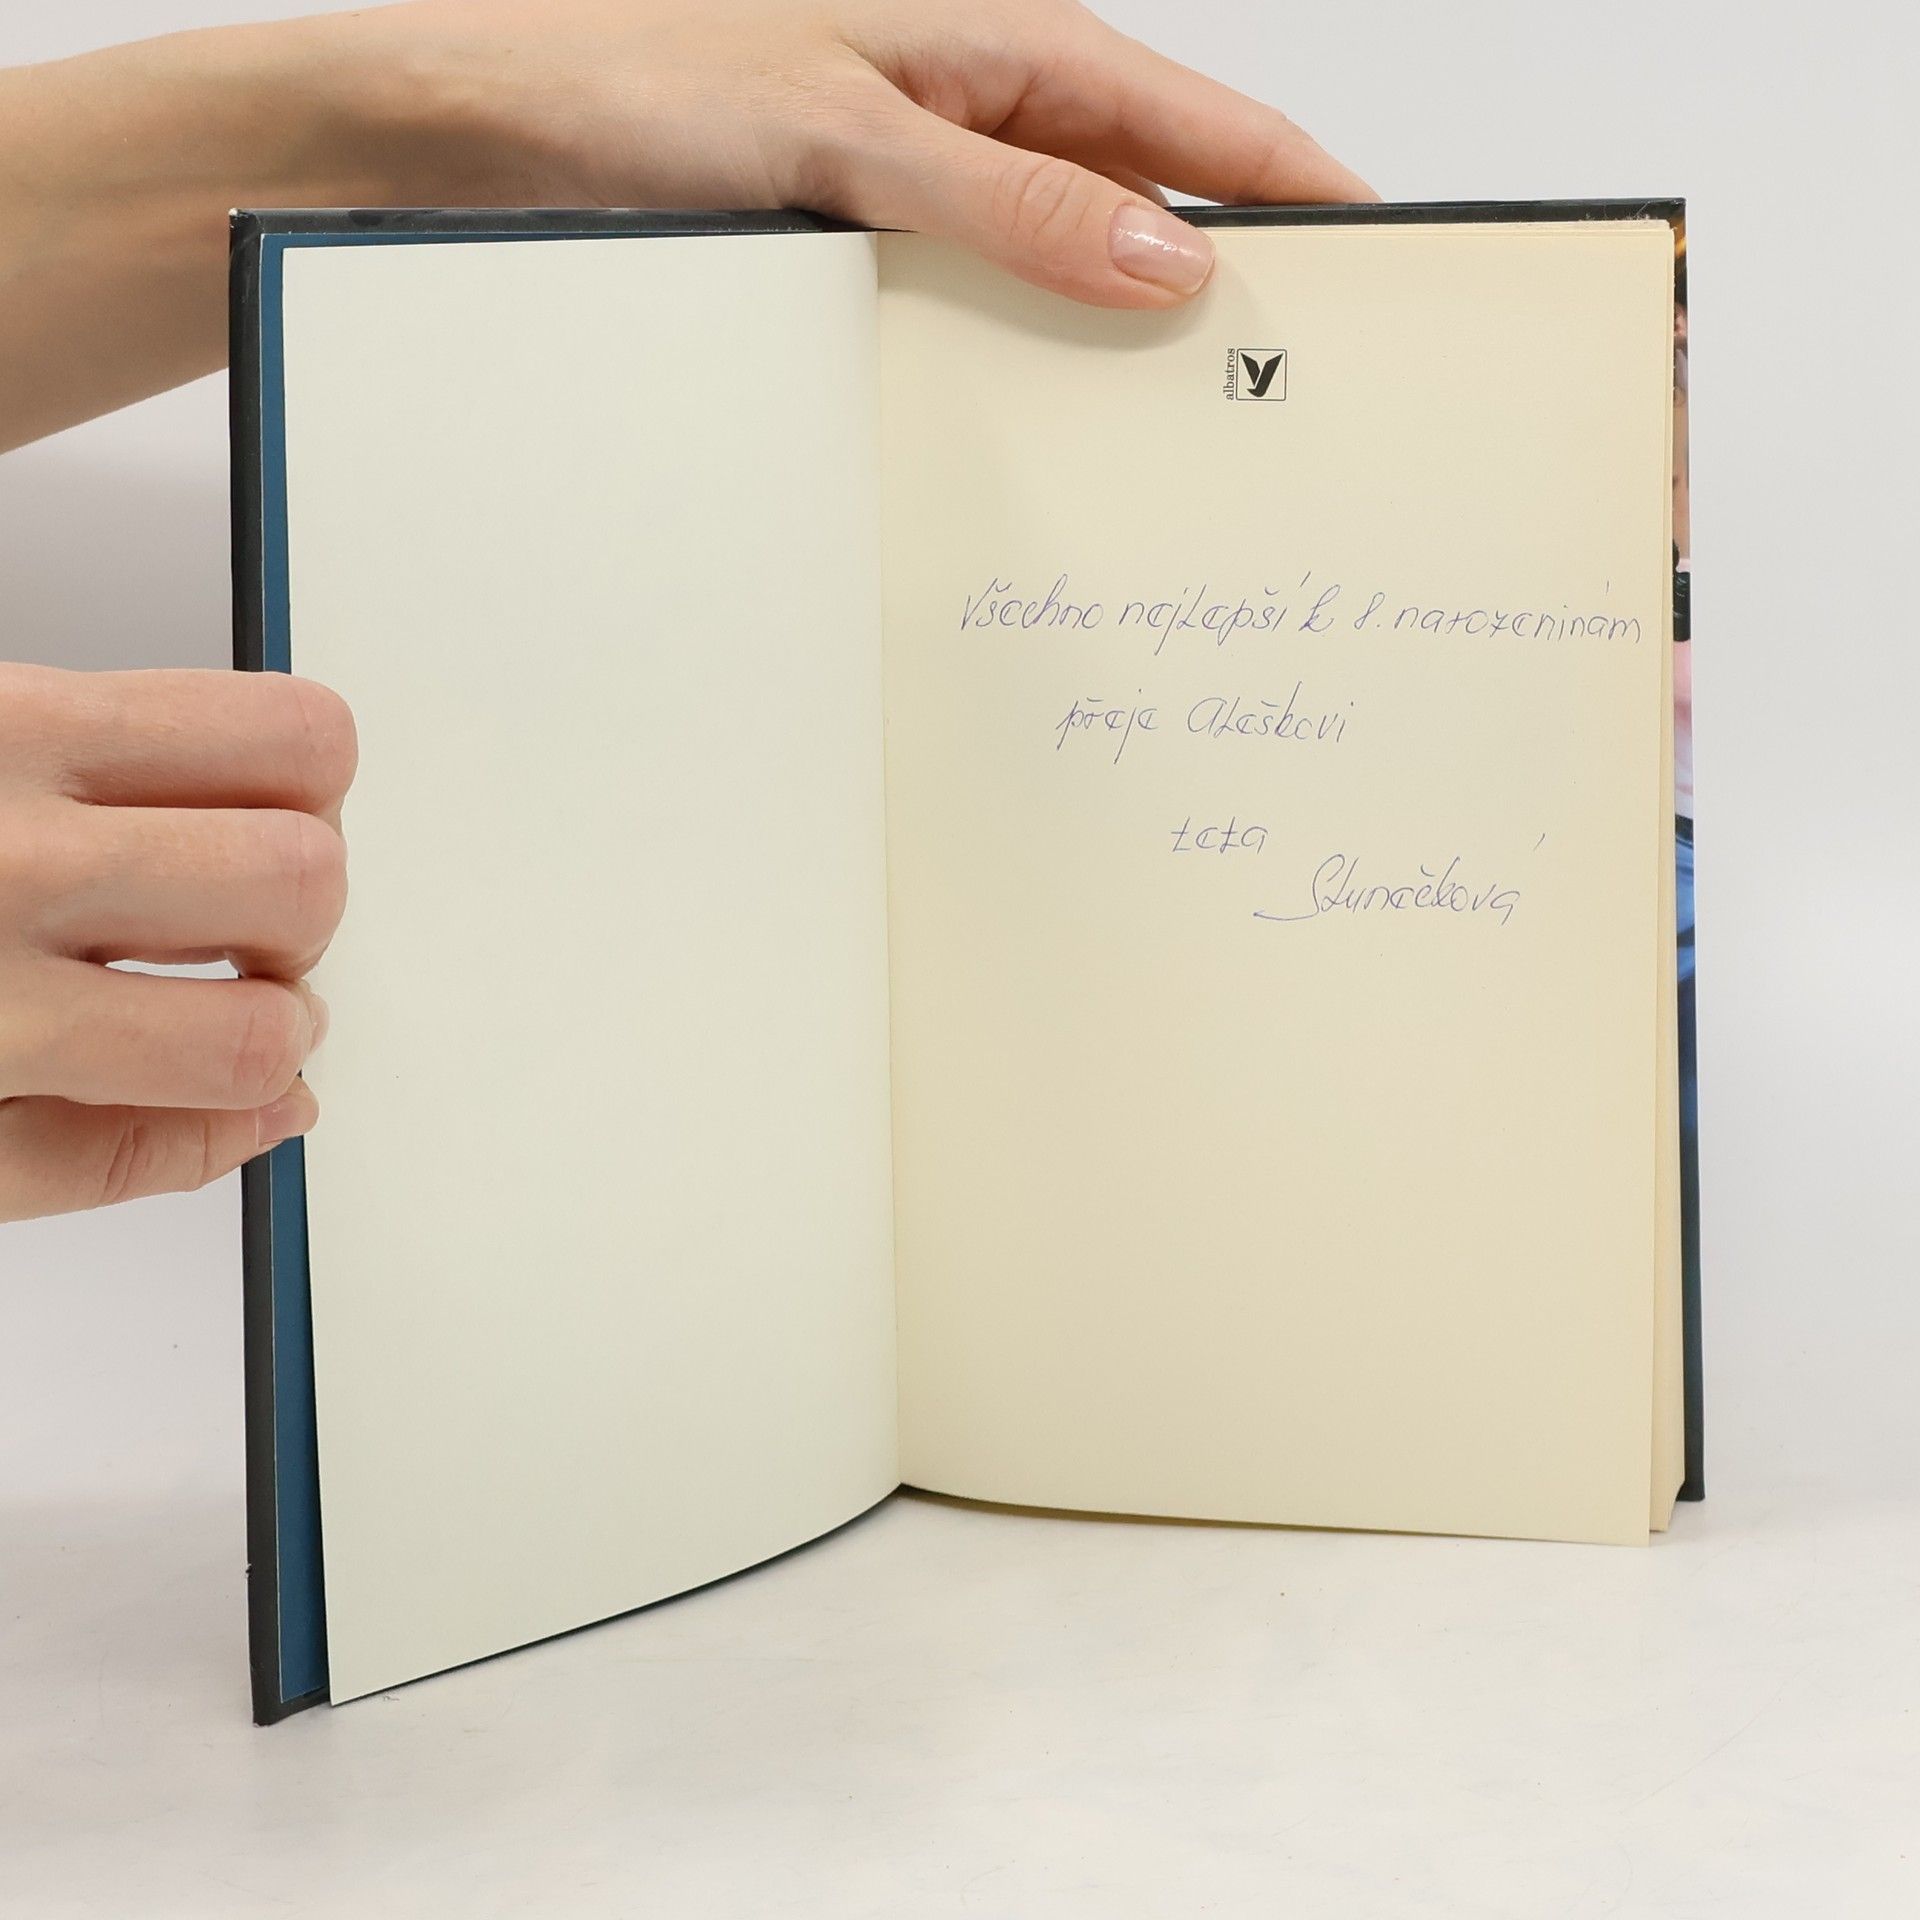 albatros
Všechno nejlepší k 8. narozeninám
přeje Aleškovi
teta
Slunečková